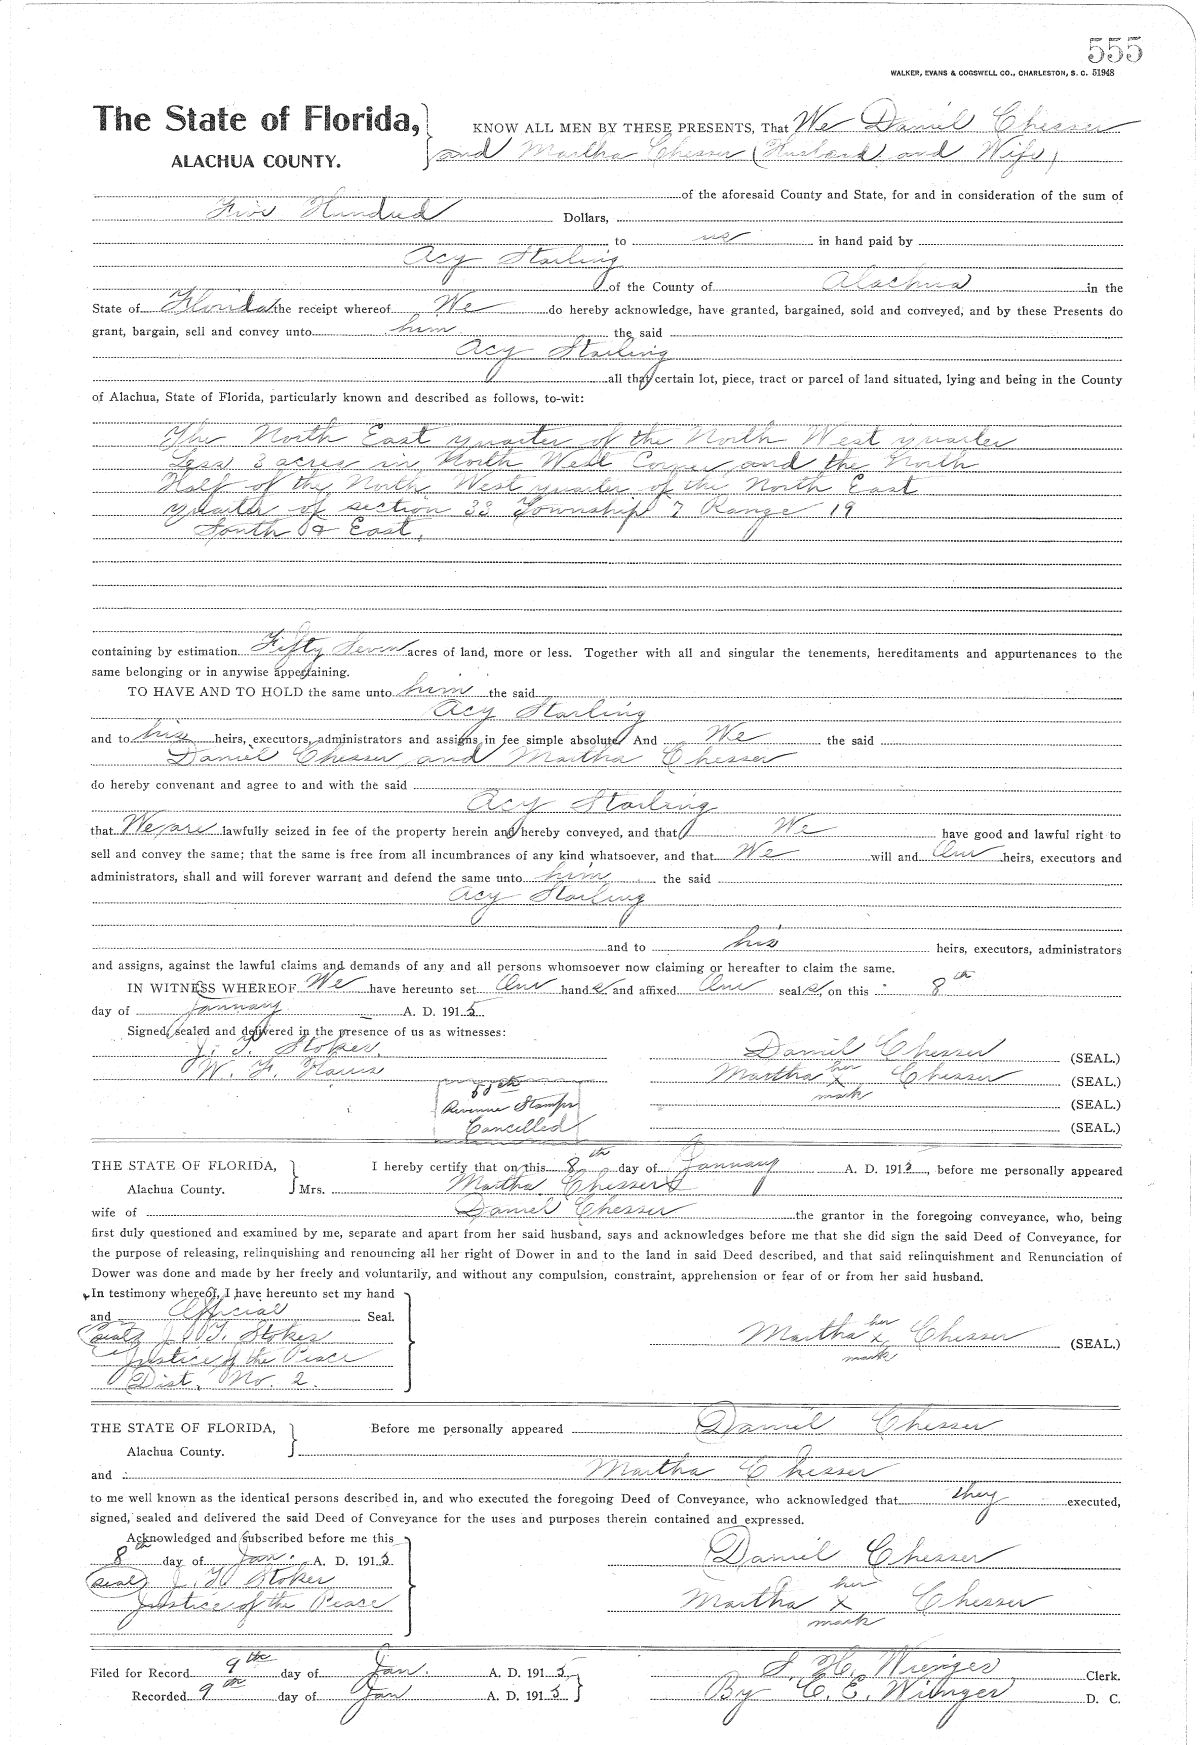 555
WALKER, EVANS & COGSWELL CO., CHARLESTON, S. C. 51948
The State of Florida,
ALACHUA COUNTY.
KNOW ALL MEN BY THESE PRESENTS, That We Daniel Chesser
and Martha Chesser (Husband and Wife)
of the aforesaid County and State, for and in consideration of the sum of
Five Hundred Dollars,
to us in hand paid by
Acy Starling
of the County of Alachua in the
State of Florida the receipt whereof We do hereby acknowledge, have granted, bargained, sold and conveyed, and by these Presents do
grant, bargain, sell and convey unto him the said
Acy Starling
all that certain lot, piece, tract or parcel of land situated, lying and being in the County
of Alachua, State of Florida, particularly known and described as follows, to-wit:
The North East quarter of the North West quarter
Less 3 acres in North West Corner and the North
Half of the North West quarter of the North East
quarter of section 33 Township 7 Range 19
South & East,
containing by estimation Fifty Seven acres of land, more or less. Together with all and singular the tenements, hereditaments and appurtenances to the
same belonging or in anywise appertaining.
TO HAVE AND TO HOLD the same unto him the said
Acy Starling
and to his heirs, executors, administrators and assigns in fee simple absolute. And We the said
Daniel Chesser and Martha Chesser
do hereby convenant and agree to and with the said
Acy Starling
that We are lawfully seized in fee of the property herein and hereby conveyed, and that We have good and lawful right to
sell and convey the same; that the same is free from all incumbrances of any kind whatsoever, and that We will and Our heirs, executors and
administrators, shall and will forever warrant and defend the same unto him the said
Acy Starling
and to his heirs, executors, administrators
and assigns, against the lawful claims and demands of any and all persons whomsoever now claiming or hereafter to claim the same.
IN WITNESS WHEREOF We have hereunto set Our hands and affixed Our seals, on this 8th
day of January A. D. 1915
Signed, sealed and delivered in the presence of us as witnesses:
J. T. Stokes,
W. F.
Daniel Chesser (SEAL.)
Martha her X mark Chesser (SEAL.)
(SEAL.)
(SEAL.)
Revenue Stamps
Cancelled
THE STATE OF FLORIDA,
Alachua County.
I hereby certify that on this 8th day of January A. D. 1915, before me personally appeared
Mrs. Martha Chesser
wife of Daniel Chesser the grantor in the foregoing conveyance, who, being
first duly questioned and examined by me, separate and apart from her said husband, says and acknowledges before me that she did sign the said Deed of Conveyance, for
the purpose of releasing, relinquishing and renouncing all her right of Dower in and to the land in said Deed described, and that said relinquishment and Renunciation of
Dower was done and made by her freely and voluntarily, and without any compulsion, constraint, apprehension or fear of or from her said husband.
In testimony whereof, I have hereunto set my hand
and Official Seal.
(Seal) J. T. Stokes
Justice of the Peace
Dist. No. 2.
Martha her x mark Chesser (SEAL.)
THE STATE OF FLORIDA,
Alachua County.
Before me personally appeared Daniel Chesser
and Martha Chesser
to me well known as the identical persons described in, and who executed the foregoing Deed of Conveyance, who acknowledged that they executed,
signed, sealed and delivered the said Deed of Conveyance for the uses and purposes therein contained and expressed.
Acknowledged and subscribed before me this
8th day of Jan. A. D. 1915
(Seal) J. T. Stokes
Justice of the Peace
Daniel Chesser
Martha her X mark Chesser
Filed for Record 9th day of Jan. A. D. 1915
Recorded 9th day of Jan A. D. 1915
S. H. Wienges Clerk.
By C. E. Wienges D. C.